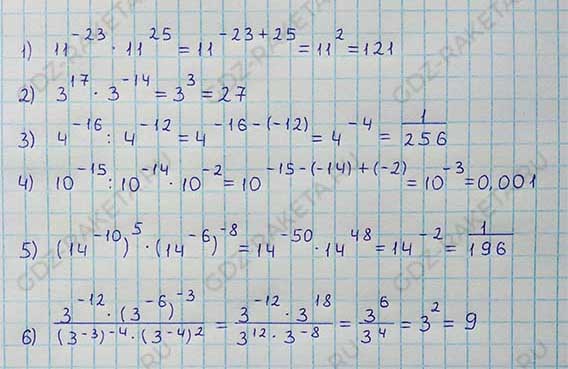 1) 11⁻²³ · 11²⁵ = 11⁻²³⁺²⁵ = 11² = 121
2) 3¹⁷ · 3⁻¹⁴ = 3³ = 27
3) 4⁻¹⁶ : 4⁻¹² = 4⁻¹⁶⁻⁽⁻¹²⁾ = 4⁻⁴ = 1/256
4) 10⁻¹⁵ : 10⁻¹⁴ · 10⁻² = 10⁻¹⁵⁻⁽⁻¹⁴⁾⁺⁽⁻²⁾ = 10⁻³ = 0,001
5) (14⁻¹⁰)⁵ · (14⁻⁶)⁻⁸ = 14⁻⁵⁰ · 14⁴⁸ = 14⁻² = 1/196
6) (3⁻¹² · (3⁻⁶)⁻³)/((3⁻³)⁻⁴ · (3⁻⁴)²) = (3⁻¹² · 3¹⁸)/(3¹² · 3⁻⁸) = 3⁶/3⁴ = 3² = 9
GDZ-RAKETA.RU